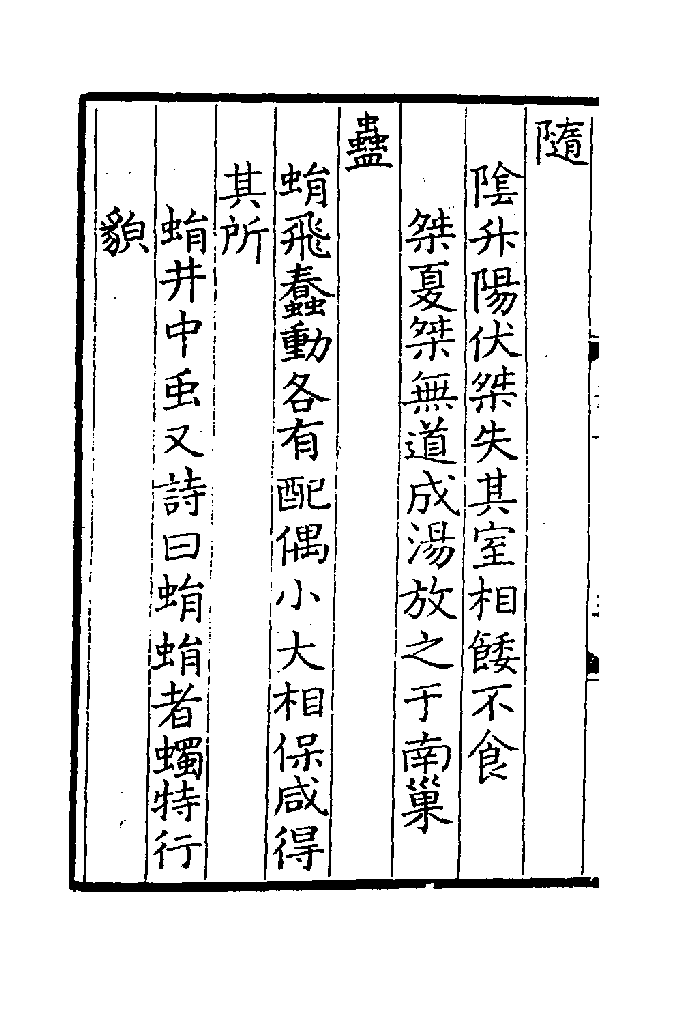 隨
陰升陽伏桀失其室相餧不食
桀夏桀無道成湯放之于南巢
蠱
蜎飛蠢動各有配偶小大相保咸得
其所
蜎井中䖝又詩曰蜎蜎者蠋特行
貌